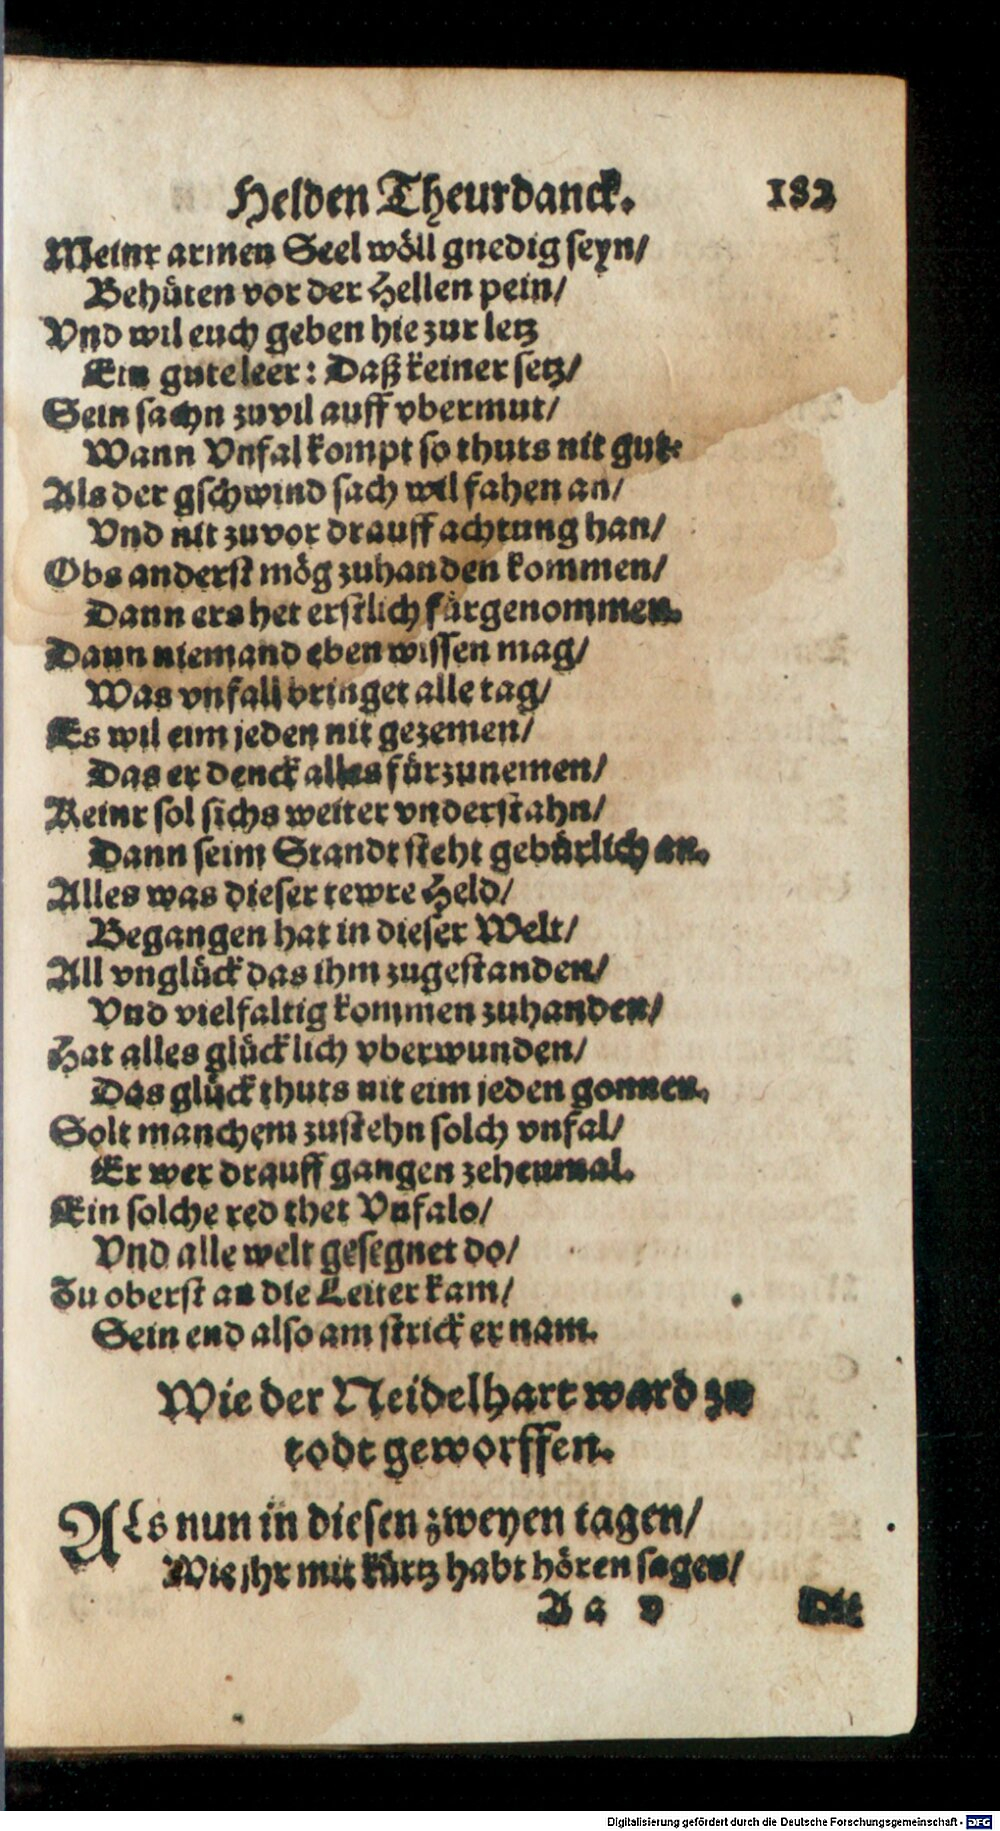 Helden Theurdanck. 182
Meinr armen Seel wöll gnedig seyn/
Behüten vor der Hellen pein/
Vnd wil euch geben hie zur letz
Ein gute leer: Daß keiner setz/
Sein sachn zuvil auff vbermut/
Wann Vnfal kompt so thuts nit gut.
Als der gschwind sach wil fahen an/
Vnd nit zuvor drauff achtung han/
Obs anderst mög zuhanden kommen/
Dann ers het erstlich fürgenommen.
Dann niemand eben wissen mag/
Was vnfall bringet alle tag/
Es wil eim jeden nit gezemen/
Das er denck alles fürzunemen/
Keinr sol sichs weiter vnderstahn/
Dann seim Standt steht gebürlich an.
Alles was dieser tewre Held/
Begangen hat in dieser Welt/
All vnglück das ihm zugestanden/
Vnd vielfaltig kommen zuhanden/
Hat alles glücklich vberwunden/
Das glück thuts nit eim jeden gonnen.
Solt manchem zustehn solch vnfal/
Er wer drauff gangen zehenmal.
Ein solche red thet Vnfalo/
Vnd alle welt gesegnet do/
Zu oberst an die Leiter kam/
Sein end also am strick er nam.
Wie der Neidelhart ward zu
todt geworffen.
ALs nun in diesen zweyen tagen/
Wie jhr mit kürtz habt hören sagen/
A a v Die
Digitalisierung gefördert durch die Deutsche Forschungsgemeinschaft - DFG